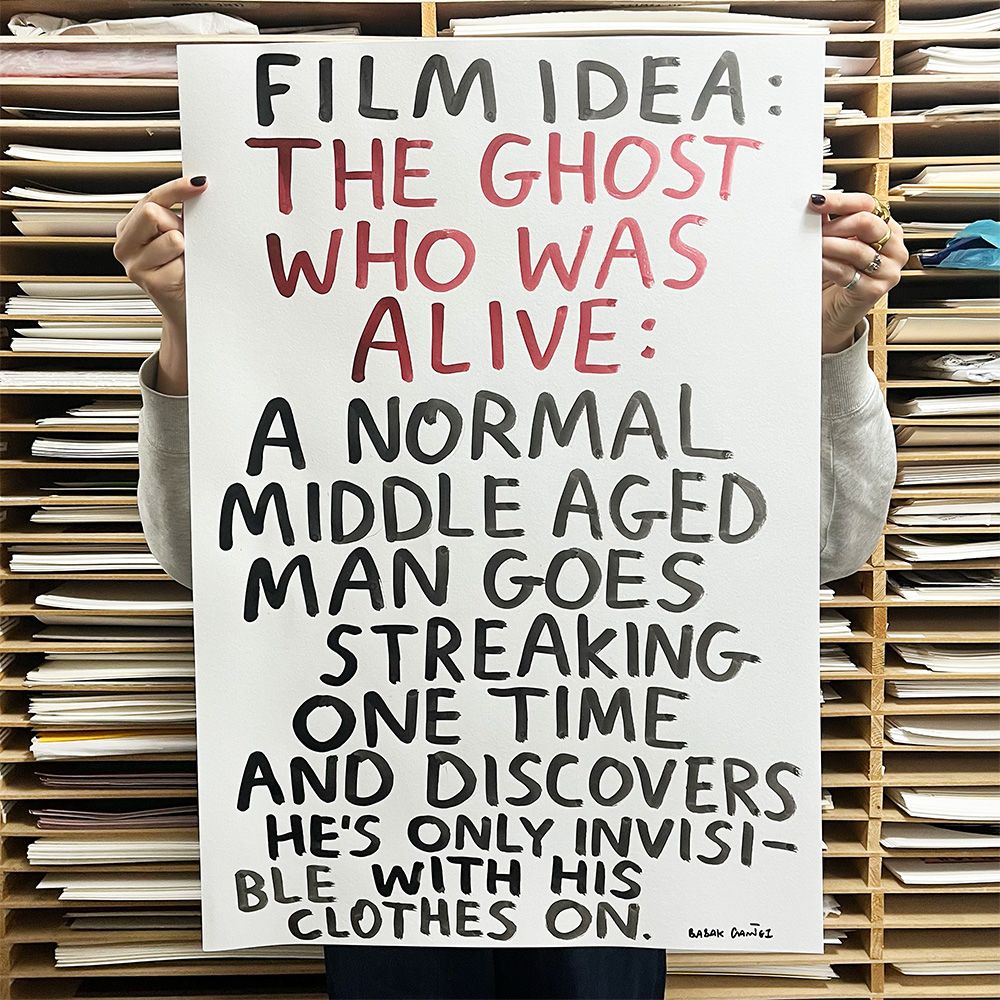 FILM IDEA:
THE GHOST
WHO WAS
ALIVE:
A NORMAL
MIDDLE AGED
MAN GOES
STREAKING
ONE TIME
AND DISCOVERS
HE'S ONLY INVISI-
BLE WITH HIS
CLOTHES ON.
BABAK GANJEI